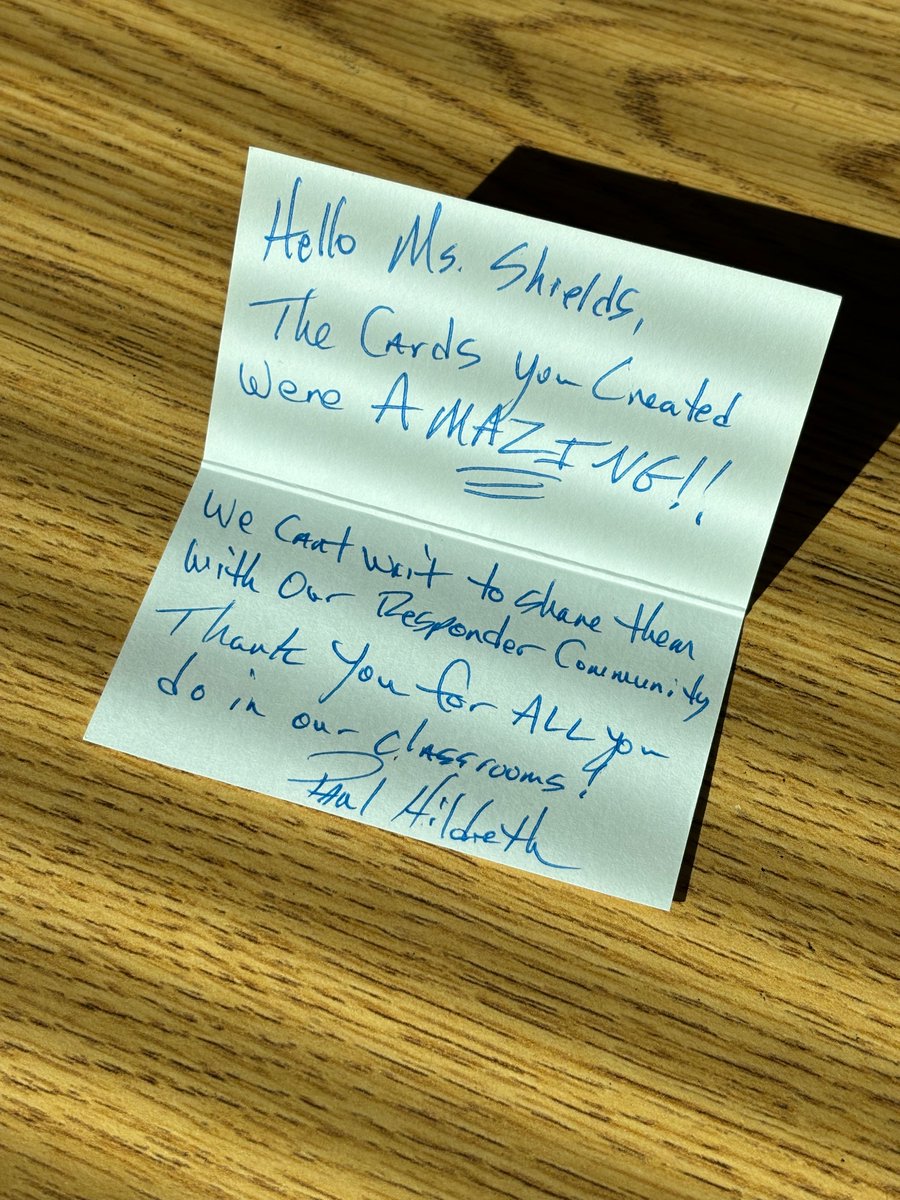 Hello Ms. Shields,
The Cards you Created
Were AMAZING!!
We Can't Wait to share them
With Our Responder Community
Thank You for ALL you
do in our classrooms!
Paul Hildreth